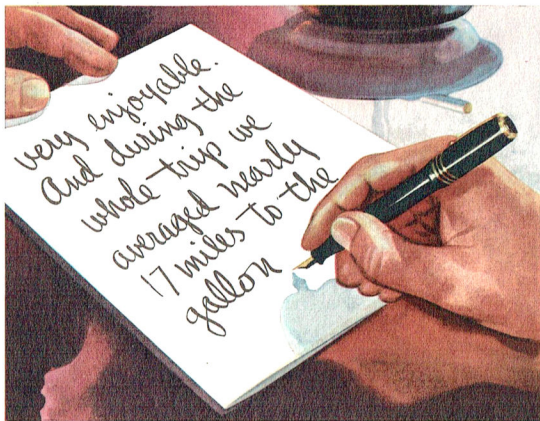 very enjoyable.
And during the
whole trip we
averaged nearly
17 miles to the
gallon